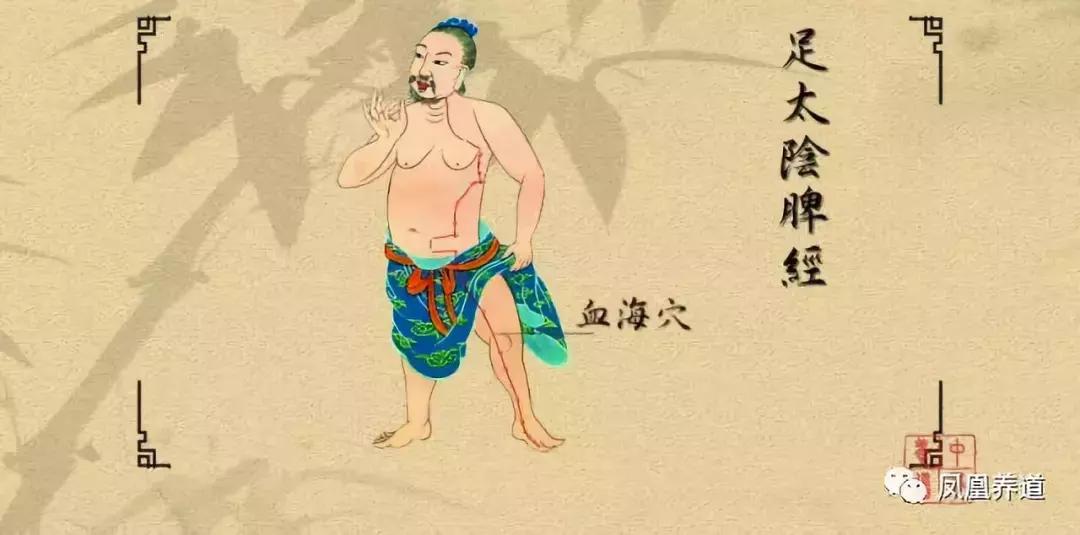 足太陰脾經
血海穴
中
凤凰养道